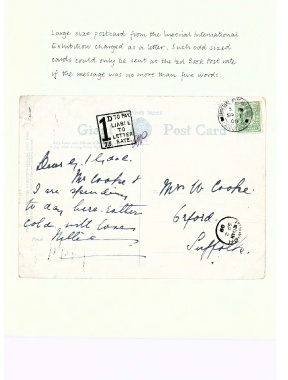 Large size postcard from the Imperial International
Exhibition charged as a letter. Such odd sized
cards could only be sent at the ½d Book Post rate
if the message was no more than five words.
1D TO PAY
LIABLE
TO
LETTER
RATE
Post Card
Dear
Mr Cooke &
I are spending
to day here. Rather
cold, with love
Nellie
Mrs W Cooke.
Orford.
Suffolk.